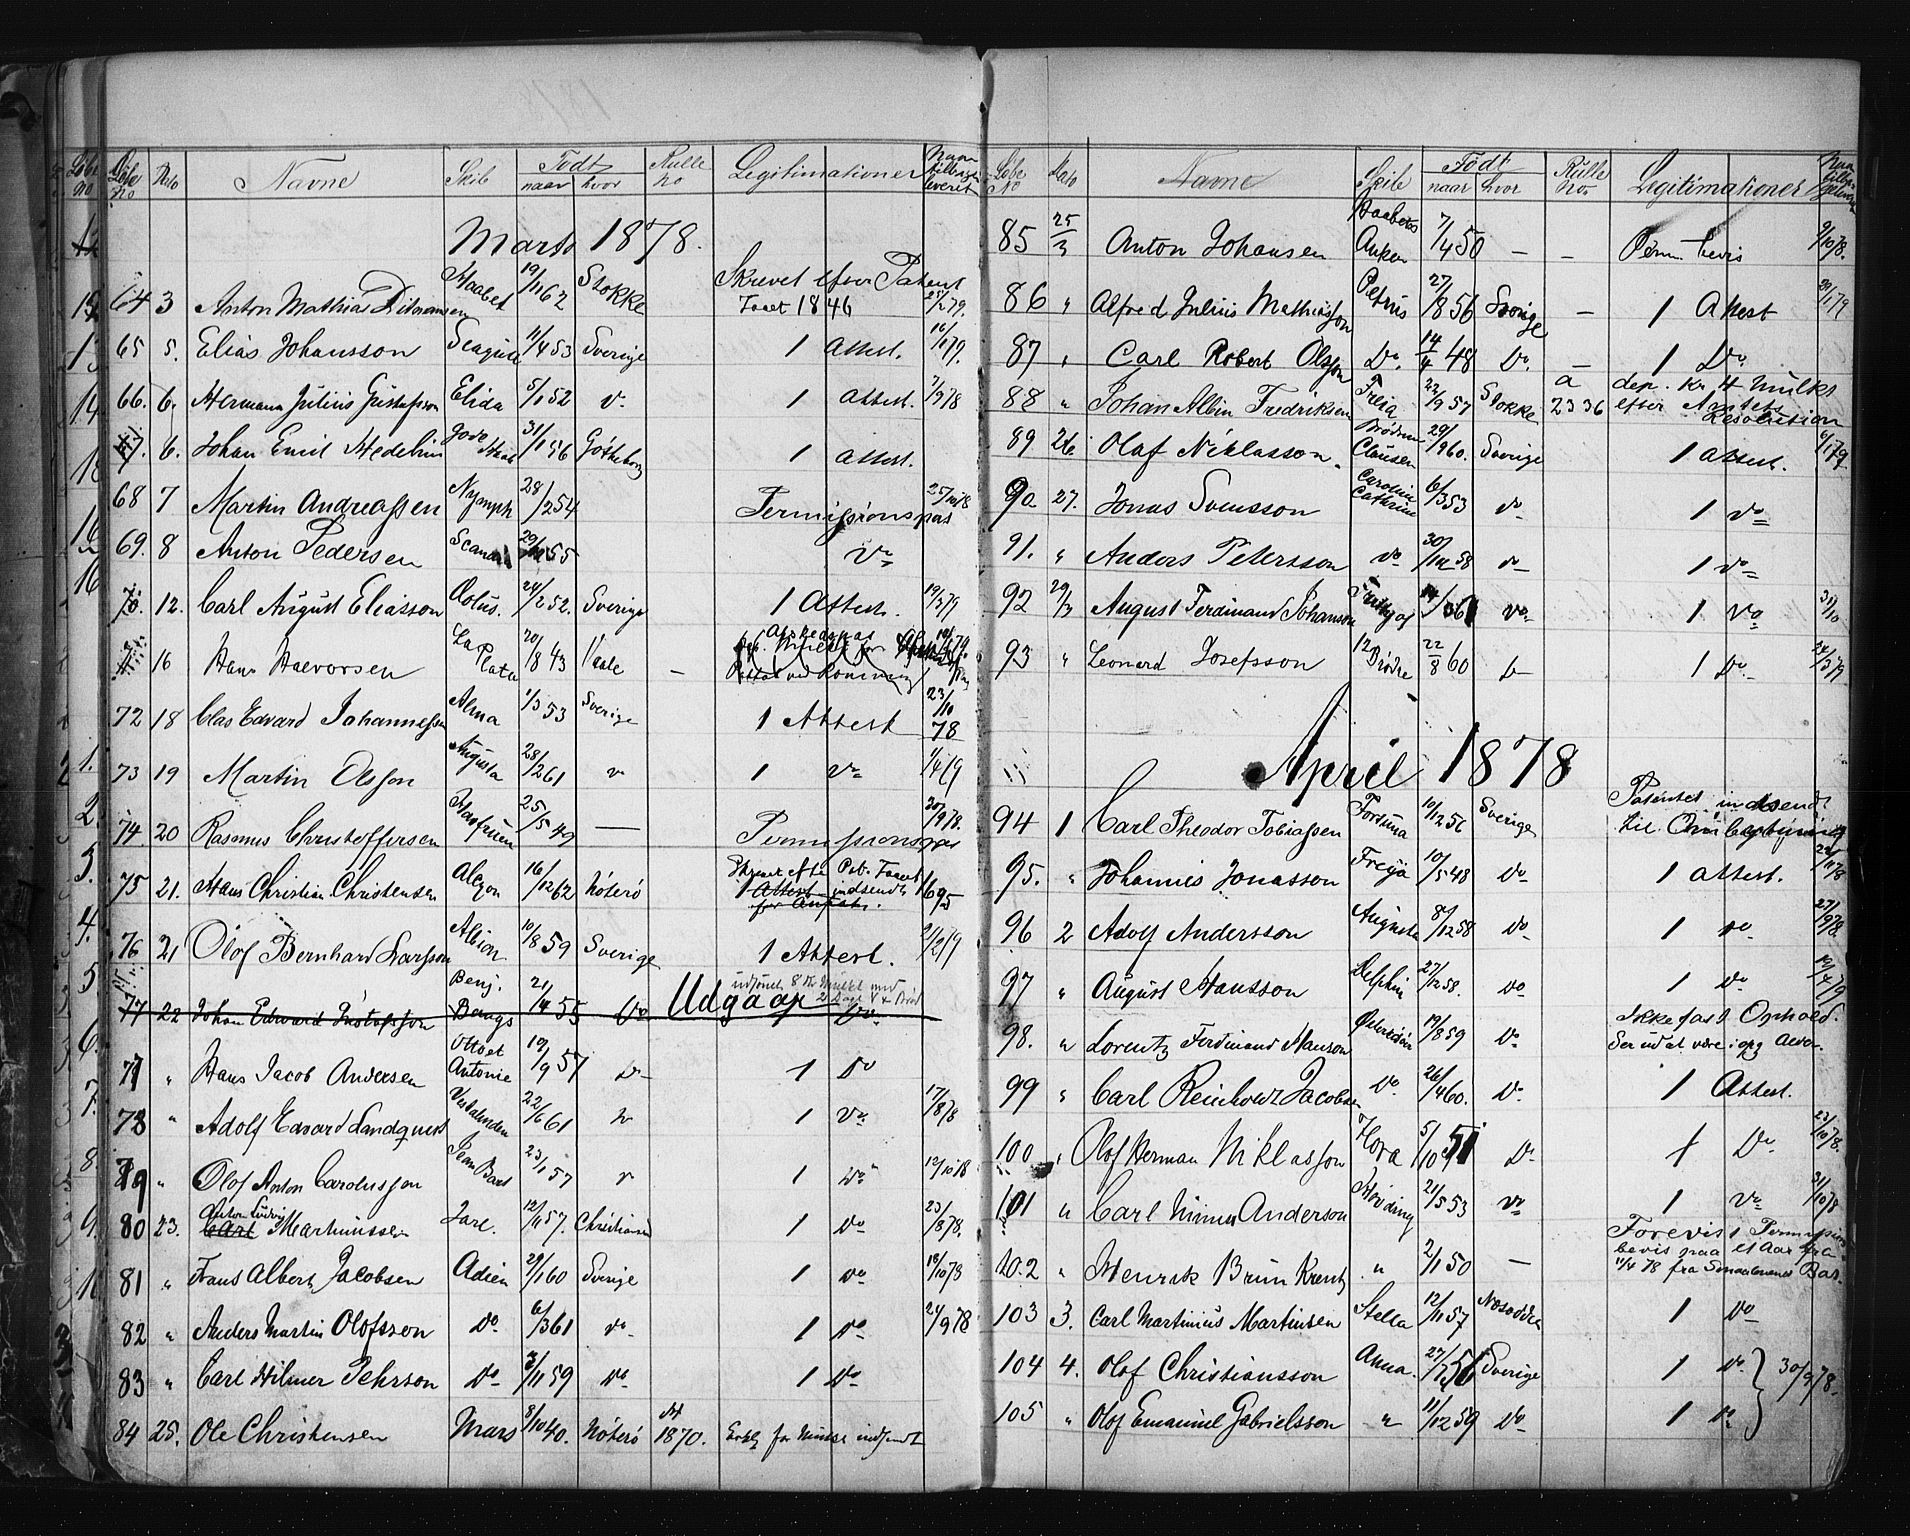 Løbe No Dato Navne Skib Født naar hvor Rulle No Legitimationer Naar tilbageleveret
Marts 1878.
64 3 Anton Mathias Ditmansen Haabet 19/1 62 Stokke Skrevet efter Patent Faaet 1846 25/2 79.
65 5. Elias Johansson Seagull 11/4 53 Sverige 1 Attest. 16/1 79.
66. 6. Herman Julius Gustafsson Elida 5/1 52 do 1 Attest. 7/9 78
67. 6. Johan Emil Hedelin 31/1 56 Gøtheborg 1 Attest.
68 7 Martin Andreassen Nymph 28/2 54 Permissionspas 25/10 78
69. 8 Anton Pedersen 55 Do
70. 12. Carl August Eliasson Lotus. 24/2 52. Sverige 1 Attest. 19/3 79
71 16 Hans Halvorsen La Plata 20/8 43 Vaale –
72 18 Clas Edvard Johannesson Alma 1/3 53 Sverige 1 Attest 23/10 78
73 19 Martin Olsson Augusta 28/2 61 do 1 Do 11/4 79
74. 20 Rasmus Christoffersen Havfruen 25/5 49 — Permissionspas 20/9 78.
75 21. Hans Christian Christensen Alcyon 16/12 62 Nøterø Skrevet efter Pat. Faaet 1695
1 Attest indsendt for
76 21 Olof Bernhard Larsson Albion 10/8 59 Sverige 1 Attest. 2/12 79
77 22 Johan Edward Gustafsson Benj. Bangs 21/4 55 Do Udgaar 1 Do.
77 " Hans Jacob Andersen Otto et Antonie 19/9 57 Do 1 Do
78 " Adolf Edvard Landqvist 22/6 61 do 1 Do. 17/8 78
79 " Olof Anton Carolusson Jean Bart 23/1 57 do 1 Do 12/10 78
80 23. Carl Anton Ludvig Martinussen Jarl. 12/11 57. Christiansand 1 Do 23/8 78.
81 " Frans Albert Jacobsen Adien 29/1 60 Sverige 1 Do 18/10 78
82 " Anders Martin Olofsson Do 6/3 61 Do 1 Do 24/9 78
83 " Carl Hilmer Pehrson Do 3/11 59 Do 1 Do
84 25. Ole Christensen Mars 8/10 40. Nøterø 1870. indsendt
Løbe No Dato Navne Skib Født naar hvor Rulle No. Legitimationer Naar
85 25/3 Anton Johansen Haabets Anker 7/4 50 – – Perm bevis 9/10 78.
86 " Alfred Julius Mathiasson Petrus 27/8 56 Sverige – 1 Attest 29/1 79
87 " Carl Robert Olsson Do. 14/4 48 Do. – 1 Do
88 " Johan Albin Fredriksen Freia 22/9 57 Stokke a 2336 dep. Kr 4 Mulkt efter Amtets Resolution
89 26 Olaf Niklasson. Brødrene Clausen 29/9 60. Sverige 1 Attest. 6/1 79
90 27. Jonas Svensson Caroline Cathrine 6/3 53 do 1 do
91. " Anders Petersson do 30/12 58 do 1 do
92 29/3 August Ferdinand Johanson Frithjof 61 Do 1 Do 31/10
93 " Leonard Josefsson 12 Brødre 22/8 60 Do 1 Do. 24/3 79
April 1878
94 1 Carl Theodor Tobiassen Fortuna 10/12 56 Sverige Patentet indsendt til
95. " Johannes Jonasson Freya 10/5 48 Do 1 Attest. 22/11 78
96 2 Adolf Andersson Augusta 8/12 58 Do 1 do. 27/9 78.
97 " August Hansson Delphin 27/12 58. Do 1 Do 12/4 79
98. " Lorentz Ferdinand Hanson 19/8 59 Do Ikke fast Ophold. Ser ud at være i
99 " Carl Reinholdt Jacobsen Do. 26/4 60. Do. 1 Attest.
100 " Olof Herman Niklasson Flora 5/10 51 Do 1 Do 23/10 78.
101 " Carl Hilmer Anderson Høvding 21/5 53 Do 1 Do 31/10 78
102 " Henrik Brun Krentz " 2/1 50 – Forevist Permissions bevis paa et Aar fra 11/4 78 fra Smaalenenes Bat.
103 3. Carl Martinius Martinsen Stella 12/11 57 Nesodden 1 Do
104 4. Olof Christiansson Anna. 27/7 56 Sverige 1 Do 30/9 78.
105 " Olof Emanuel Gabrielsson " 11/12 59 Do 1 Do